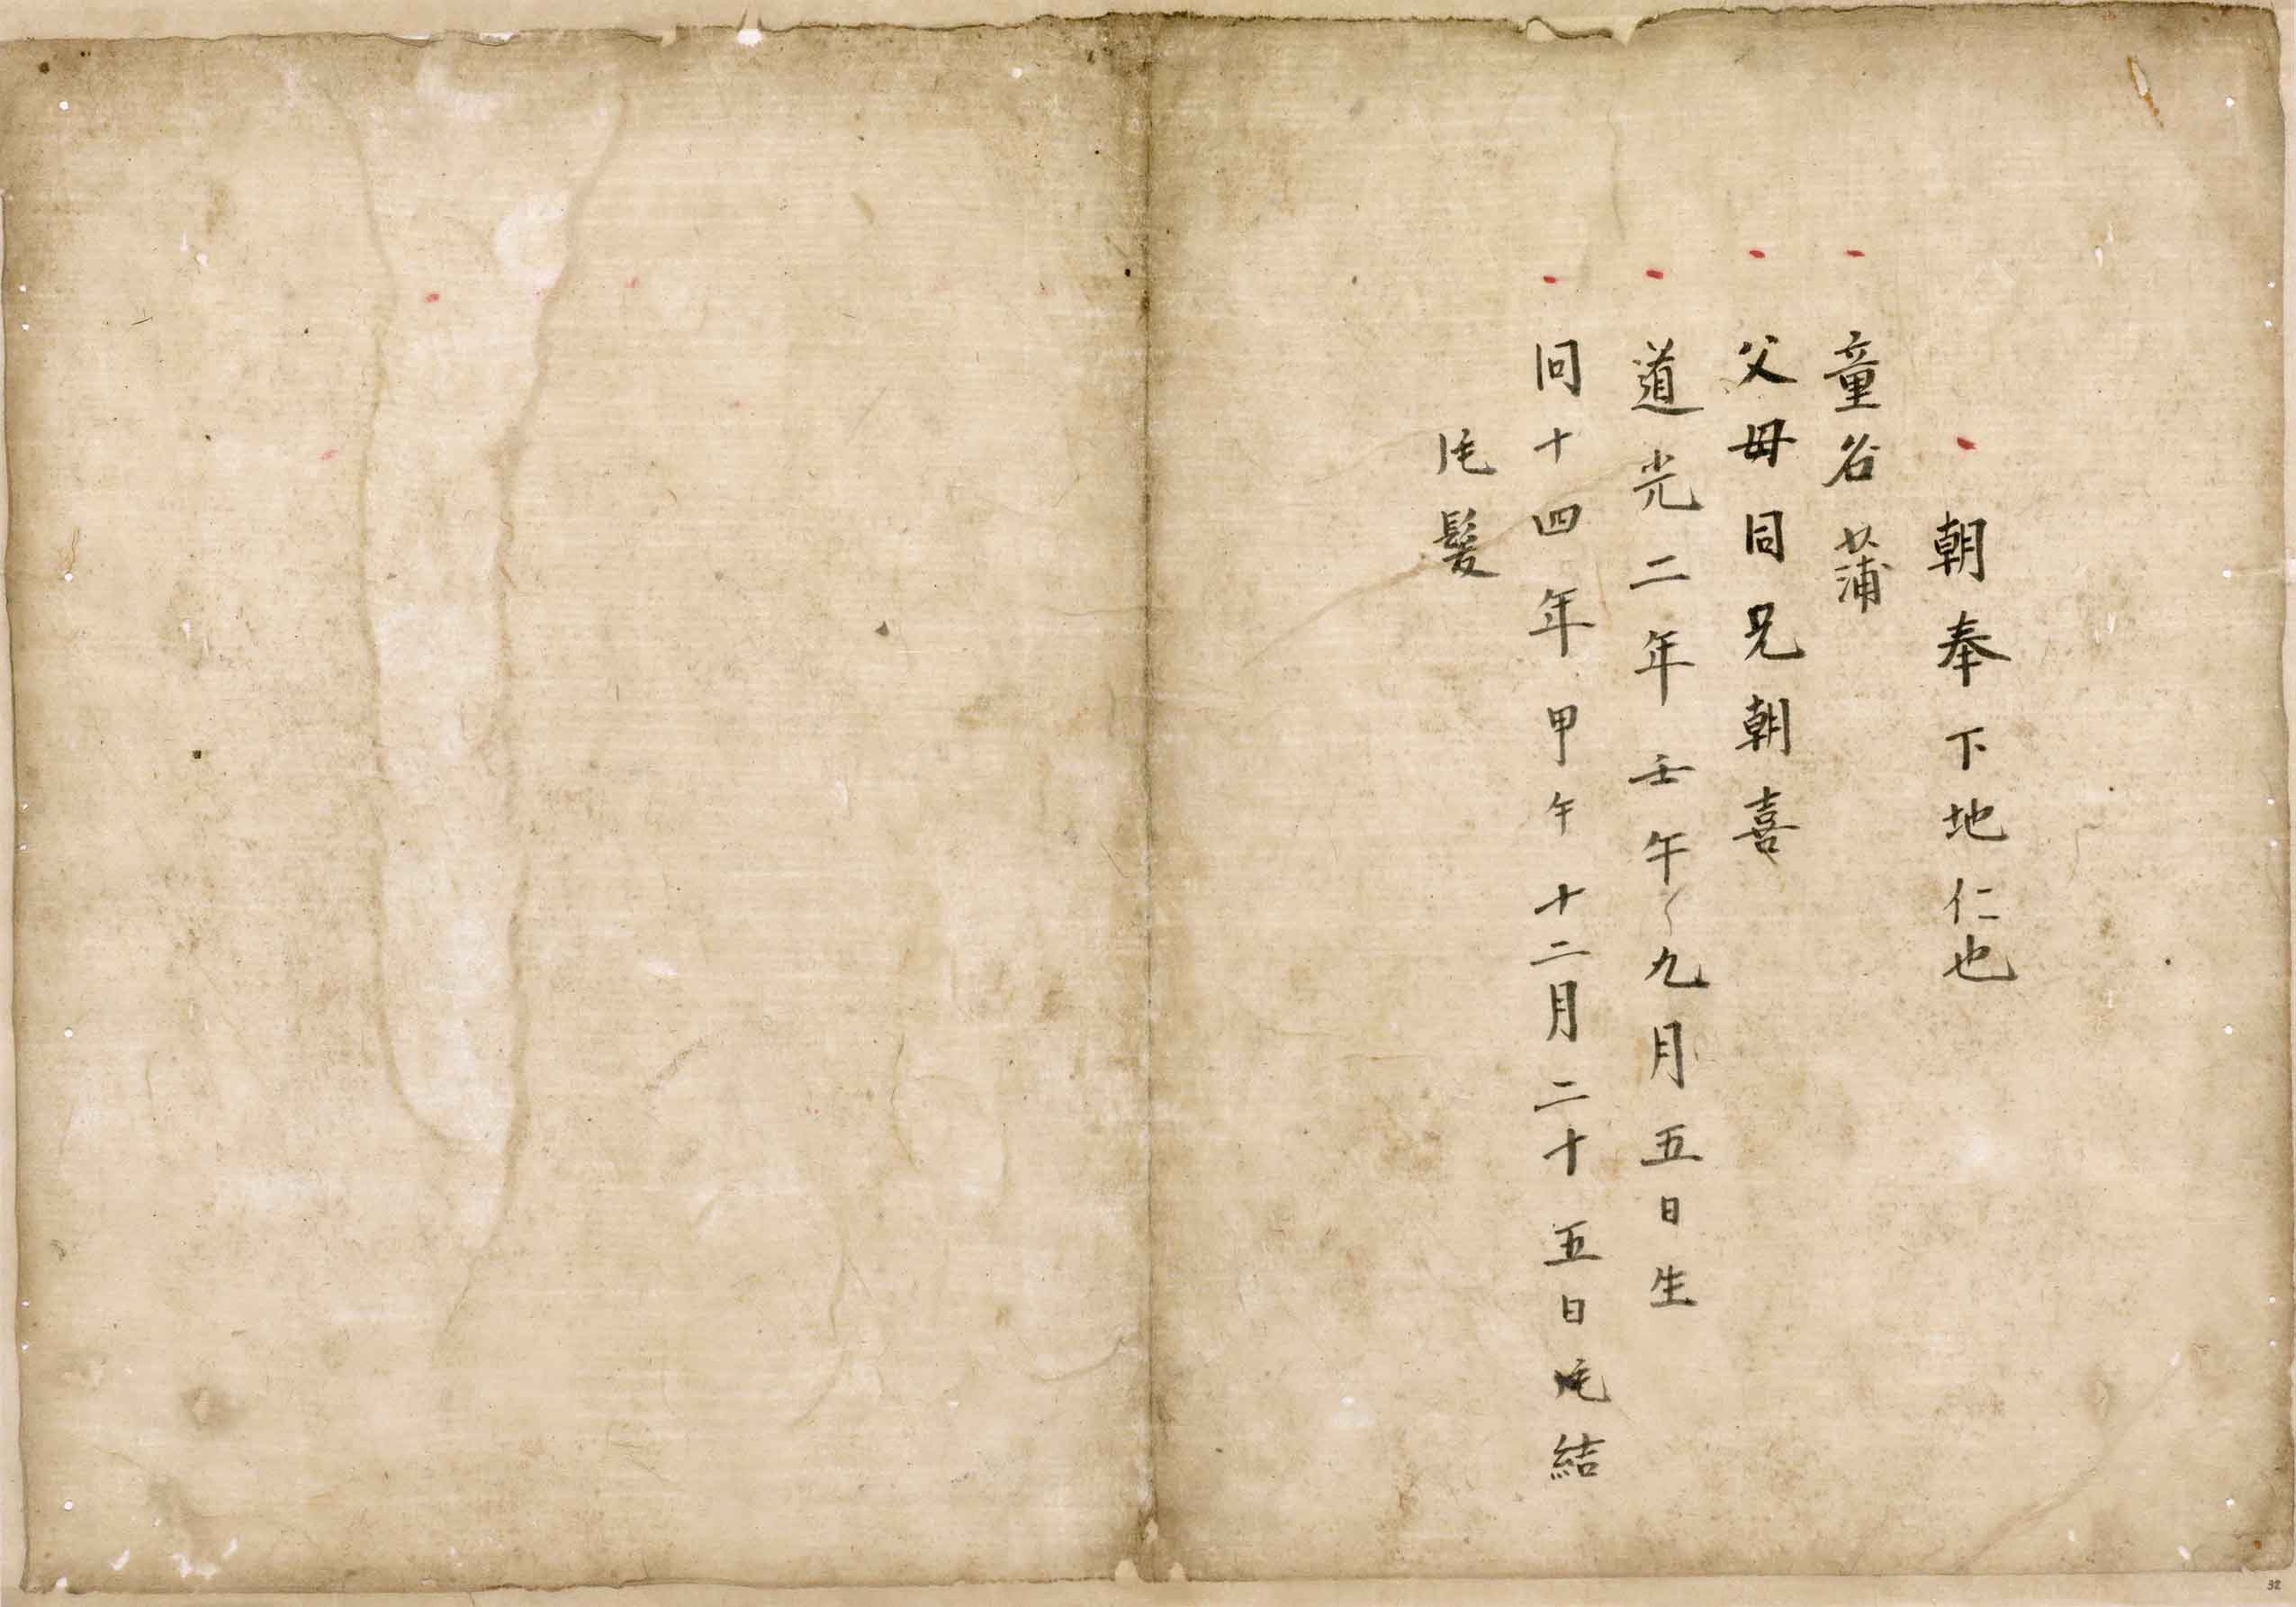 朝奉下地仁也
童名 蒲
父母同兄朝喜
道光二年壬午九月五日生
同十四年甲午十二月二十五日 結
髪
32